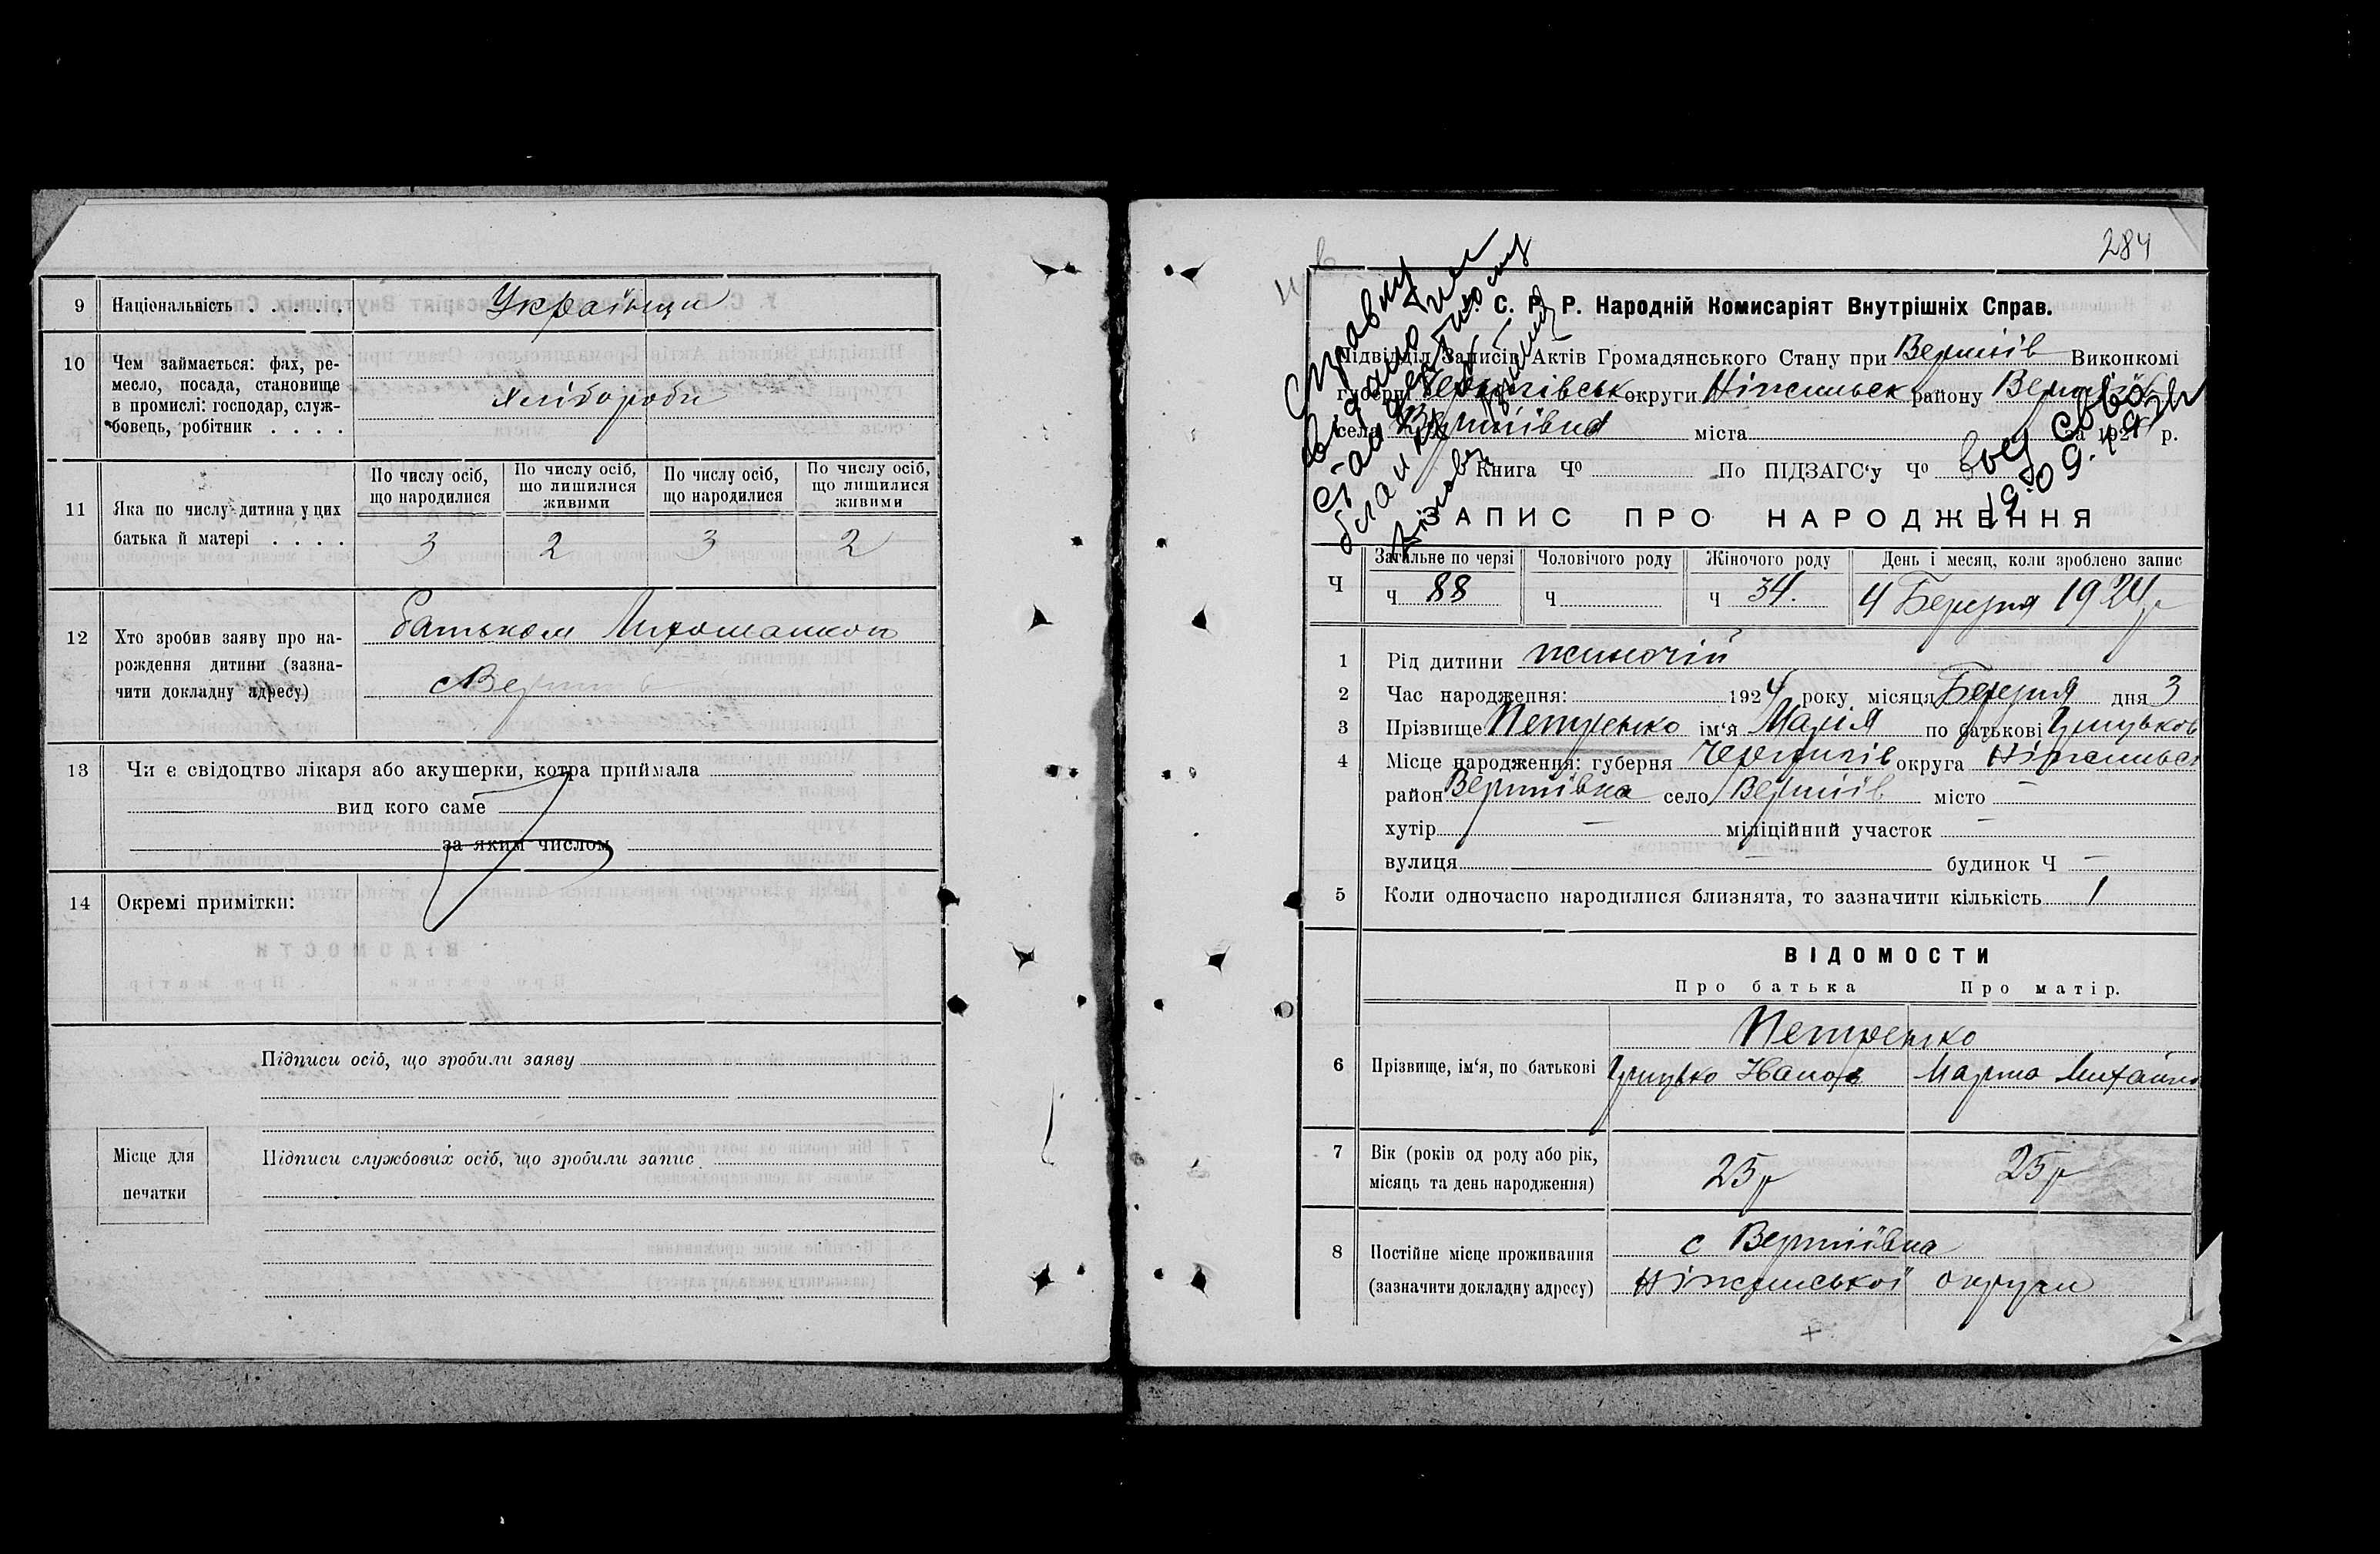 9 Національність . . . . . Українці
10 Чем займається: фах, ре-
месло, посада, становище
в промислі: господар, служ-
бовець, робітник . . . .
Хлібороби
По числу осіб, що народилися
По числу осіб, що лишилися живими
По числу осіб, що народилися
По числу осіб, що лишилися живими
11 Яка по числу дитина у цих
батька й матері . . . .
3 2 3 2
12 Хто зробив заяву про на-
рождення дитини (зазна-
чити докладну адресу)
батьком
13 Чи є свідоцтво лікаря або акушерки, котра приймала
вид кого саме
за яким числом
14 Окремі примітки:
Підписи осіб, що зробили заяву
Місце для
печатки
Підписи службових осіб, що зробили запис
284
С. Р. Р. Народній Комисаріят Внутрішніх Справ.
Підвідділ Записів Актів Громадянського Стану при Вертіїв Виконкомі
губерні Чернігівськ округи Ніженськ району
села Вертіївка міста за 192 р.
Книга Чо По ПІДЗАГС'у Чо
Справку
видано
ЗАПИС ПРО НАРОДЖЕННЯ
Ч
Загальне по черзі Чоловічого роду Жіночого роду День і месяц, коли зроблено запис
Ч 88 Ч Ч 34. 4 Березня 1924 р
1 Рід дитини жиночій
2 Час народження: 1924 року місяця Березня дня 3
3 Прізвище Петренко ім'я Марія по батькові Грицьков
4 Місце народження: губерня Чернигів округа Ніженськ
район Вертіївка село Вертіїв місто —
хутір — міліційний участок —
вулиця — будинок Ч —
5 Коли одночасно народилися близнята, то зазначити кількість 1
ВІДОМОСТИ
Про батька Про матір.
6 Прізвище, ім'я, по батькові
Петренко
Грицько Іванов Марина
7 Вік (років од роду або рік,
місяць та день народження)
25 р 25 р
8 Постійне місце проживання
(зазначити докладну адресу)
с Вертіївка
Ніженської округи